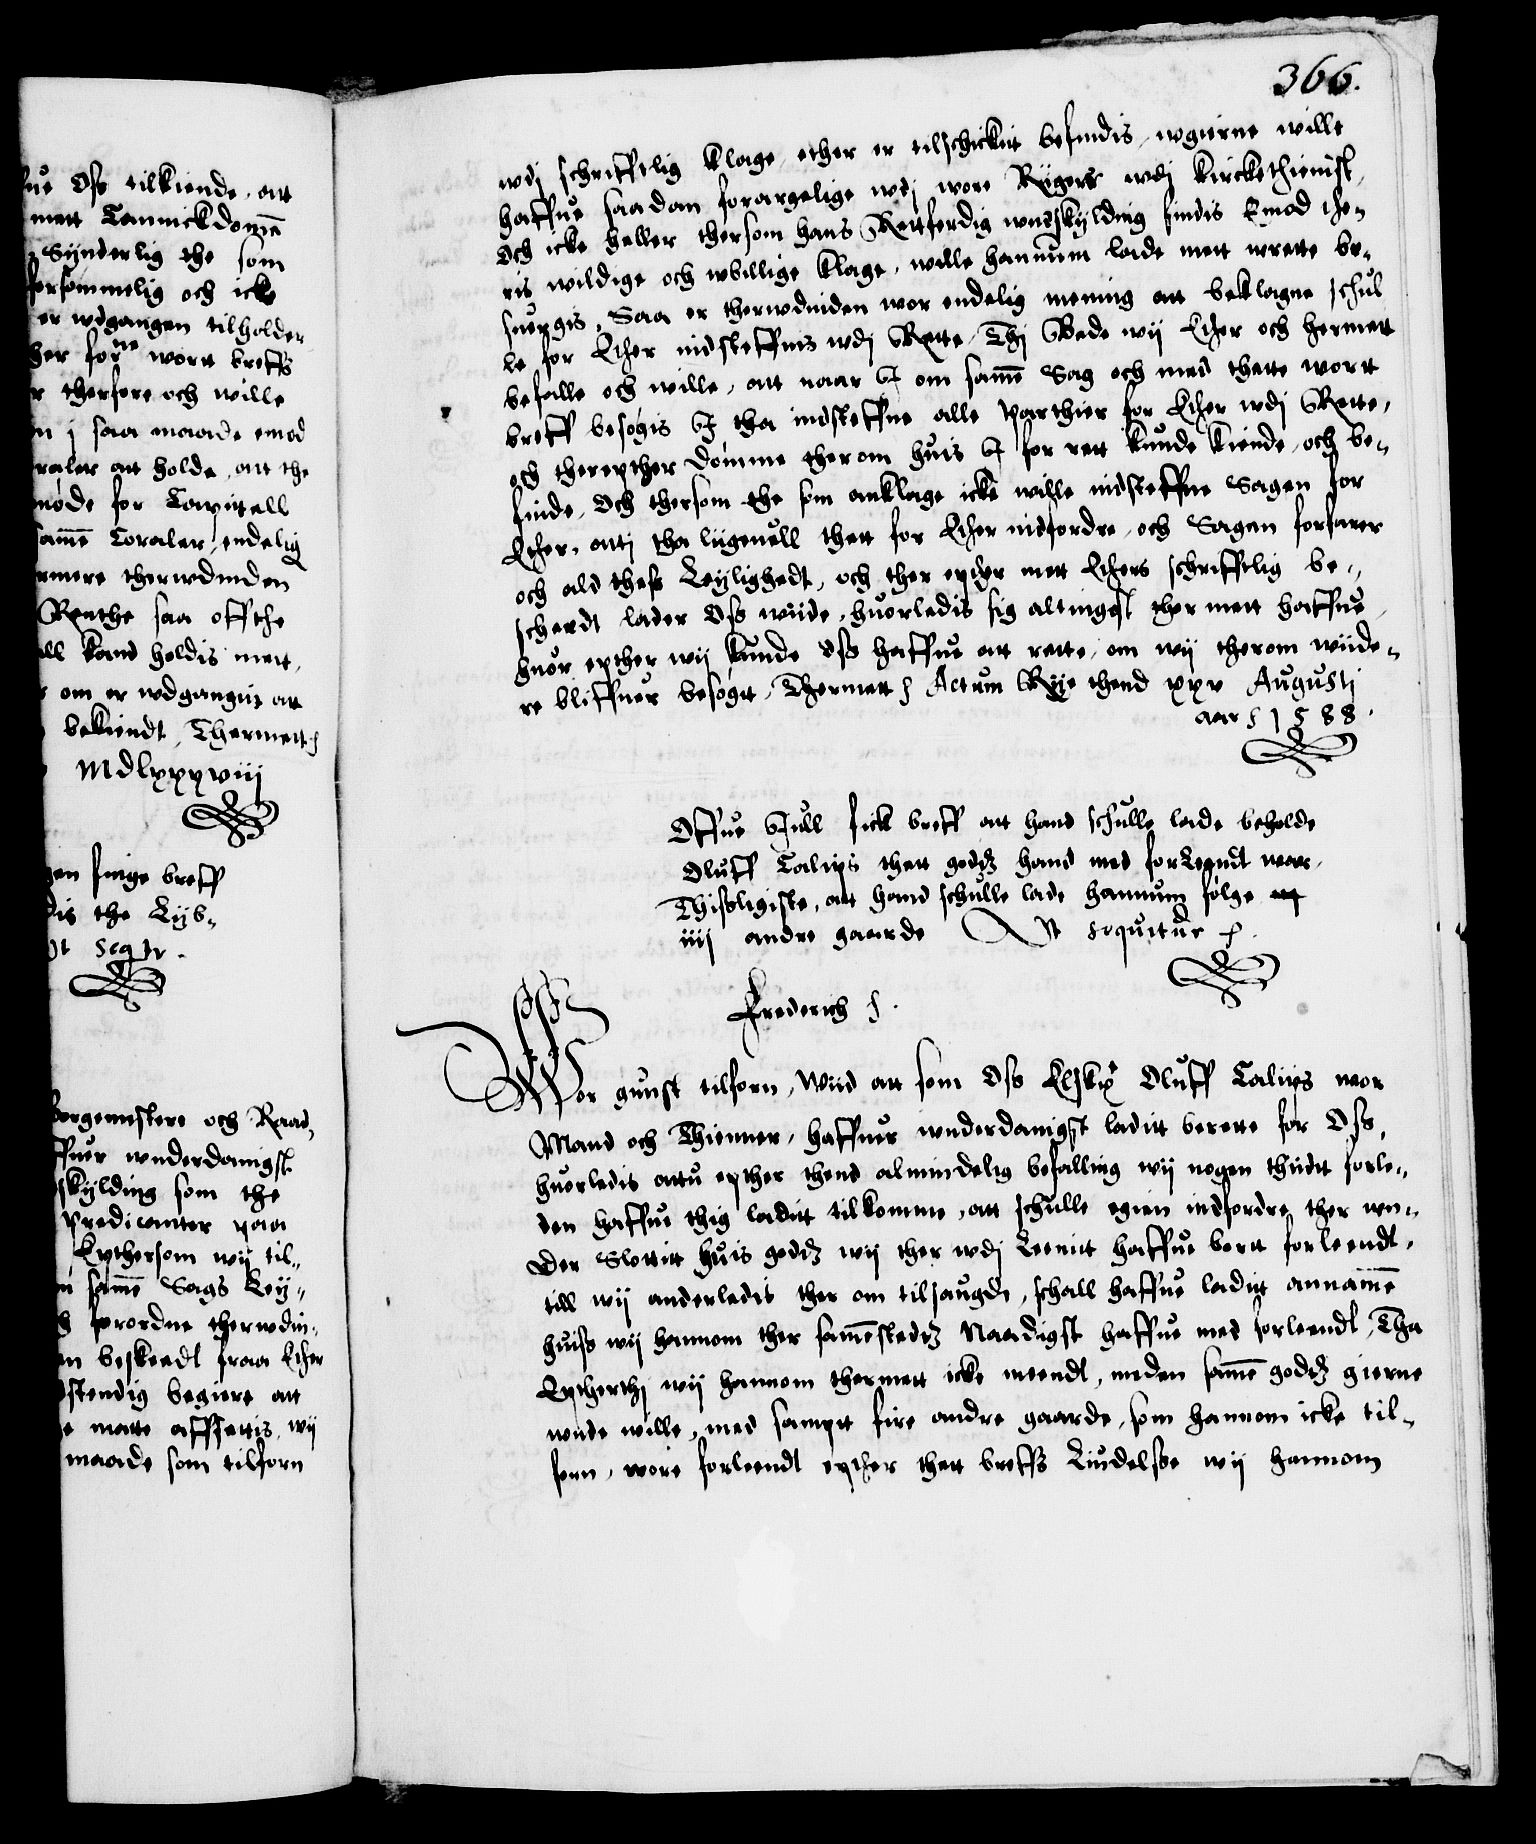 fue Oss tilkiende, att
mett Tannickdomē
Synderlig the som
forsømmelig och icke
er wdgangen tilholder
her forne wort breffs
r therfore och wille
n i saa maade emod
oraler att holde, att the
møde for Capittell
samē Coraler, endelig
ermere therwdinden
Renthe saa offthe
all kand holdis mett,
om er wdgangitt att
bekiendt, Thermett
Mdlxxxviij
gen finge breff
dis the Lyb-
Vt seqtr.
Borgemstere och Raad,
ffuer wnderdanigst
skylding som the
predicanter paa
Epthersom wij til-
samē Sags Ley-
forordne therwdin-
beskeedt fraa Ether
stendig begiere att
matte affsettis, wij
maade som tilforn
366.
wdj schrifftlig klage, ether er tilschickitt befindis, wgierne wille
haffue saadan forargelige wdj wore Rigers wdj kircke thieniste,
Och icke heller thersom hans Rettferdig wndskylding findis Emod the-
ris wildige och wbillige klage, wille hannum lade mett wrette be-
suergis, Saa er therwdinden wor endelig mening att beklagne schul
le for Ether indsteffnis wdj Rette, Thj Bede wij Ether och hermett
befalle och wille, att naar I om samē Sag och med thette wort
breff besøgis I tha indsteffne alle parthier for Ether wdj Rette,
och therepther domme therom huis I for rett kunde kiende, och be-
finde, Och thersom the som anklage icke wille indsteffne Sagen for
Ether, atj tha liigeuell thett for Ether indfordre, och Sagen forfarer
och ald thess Leylighedt, och ther epther mett Ethers schrifftlig be-
scheedt lader Oss wiide, huorledis sig altingest ther mett haffue,
huor epther wij kunde Oss haffue att rette, om wij therom wiide-
re bliffuer besøgt, Thermett Actum Rye thend xxv Augustj
aar 1588.
Offue Jull fick breff att hand schulle lade beholde
Oluff Calips thett godz hand med forleendt waar,
Thisligiste, att hand schulle lade hannum følge
iiij andre gaarde Vt sequitur
Frederich
Wor gunst tilforn, Wiid att som Oss Elskr Oluff Calips wor
Mand och Thienner, haffuer wnderdanigst laditt berette for Oss,
huorledis attu epther thend almindelig befalling wij nogen thiidt forle-
den haffue thig laditt tilkomme, att schulle egien indfordre ther wn-
der Slottitt huis godz wij ther wdj Leenitt haffue bort forleendt,
till wij anderledis ther om tilsaugde, schall haffue laditt annamē
huiss wij hannom ther samēstedz Naadigst haffue med forleendt, Tha
Eptherthj wij hannom thermett icke meendt, meden samē godz gierne
wnde wille, med sampt fire andre gaarde, som hannom icke til-
forn, wore forleendt epther thett breffs Liudelsse wij hannom